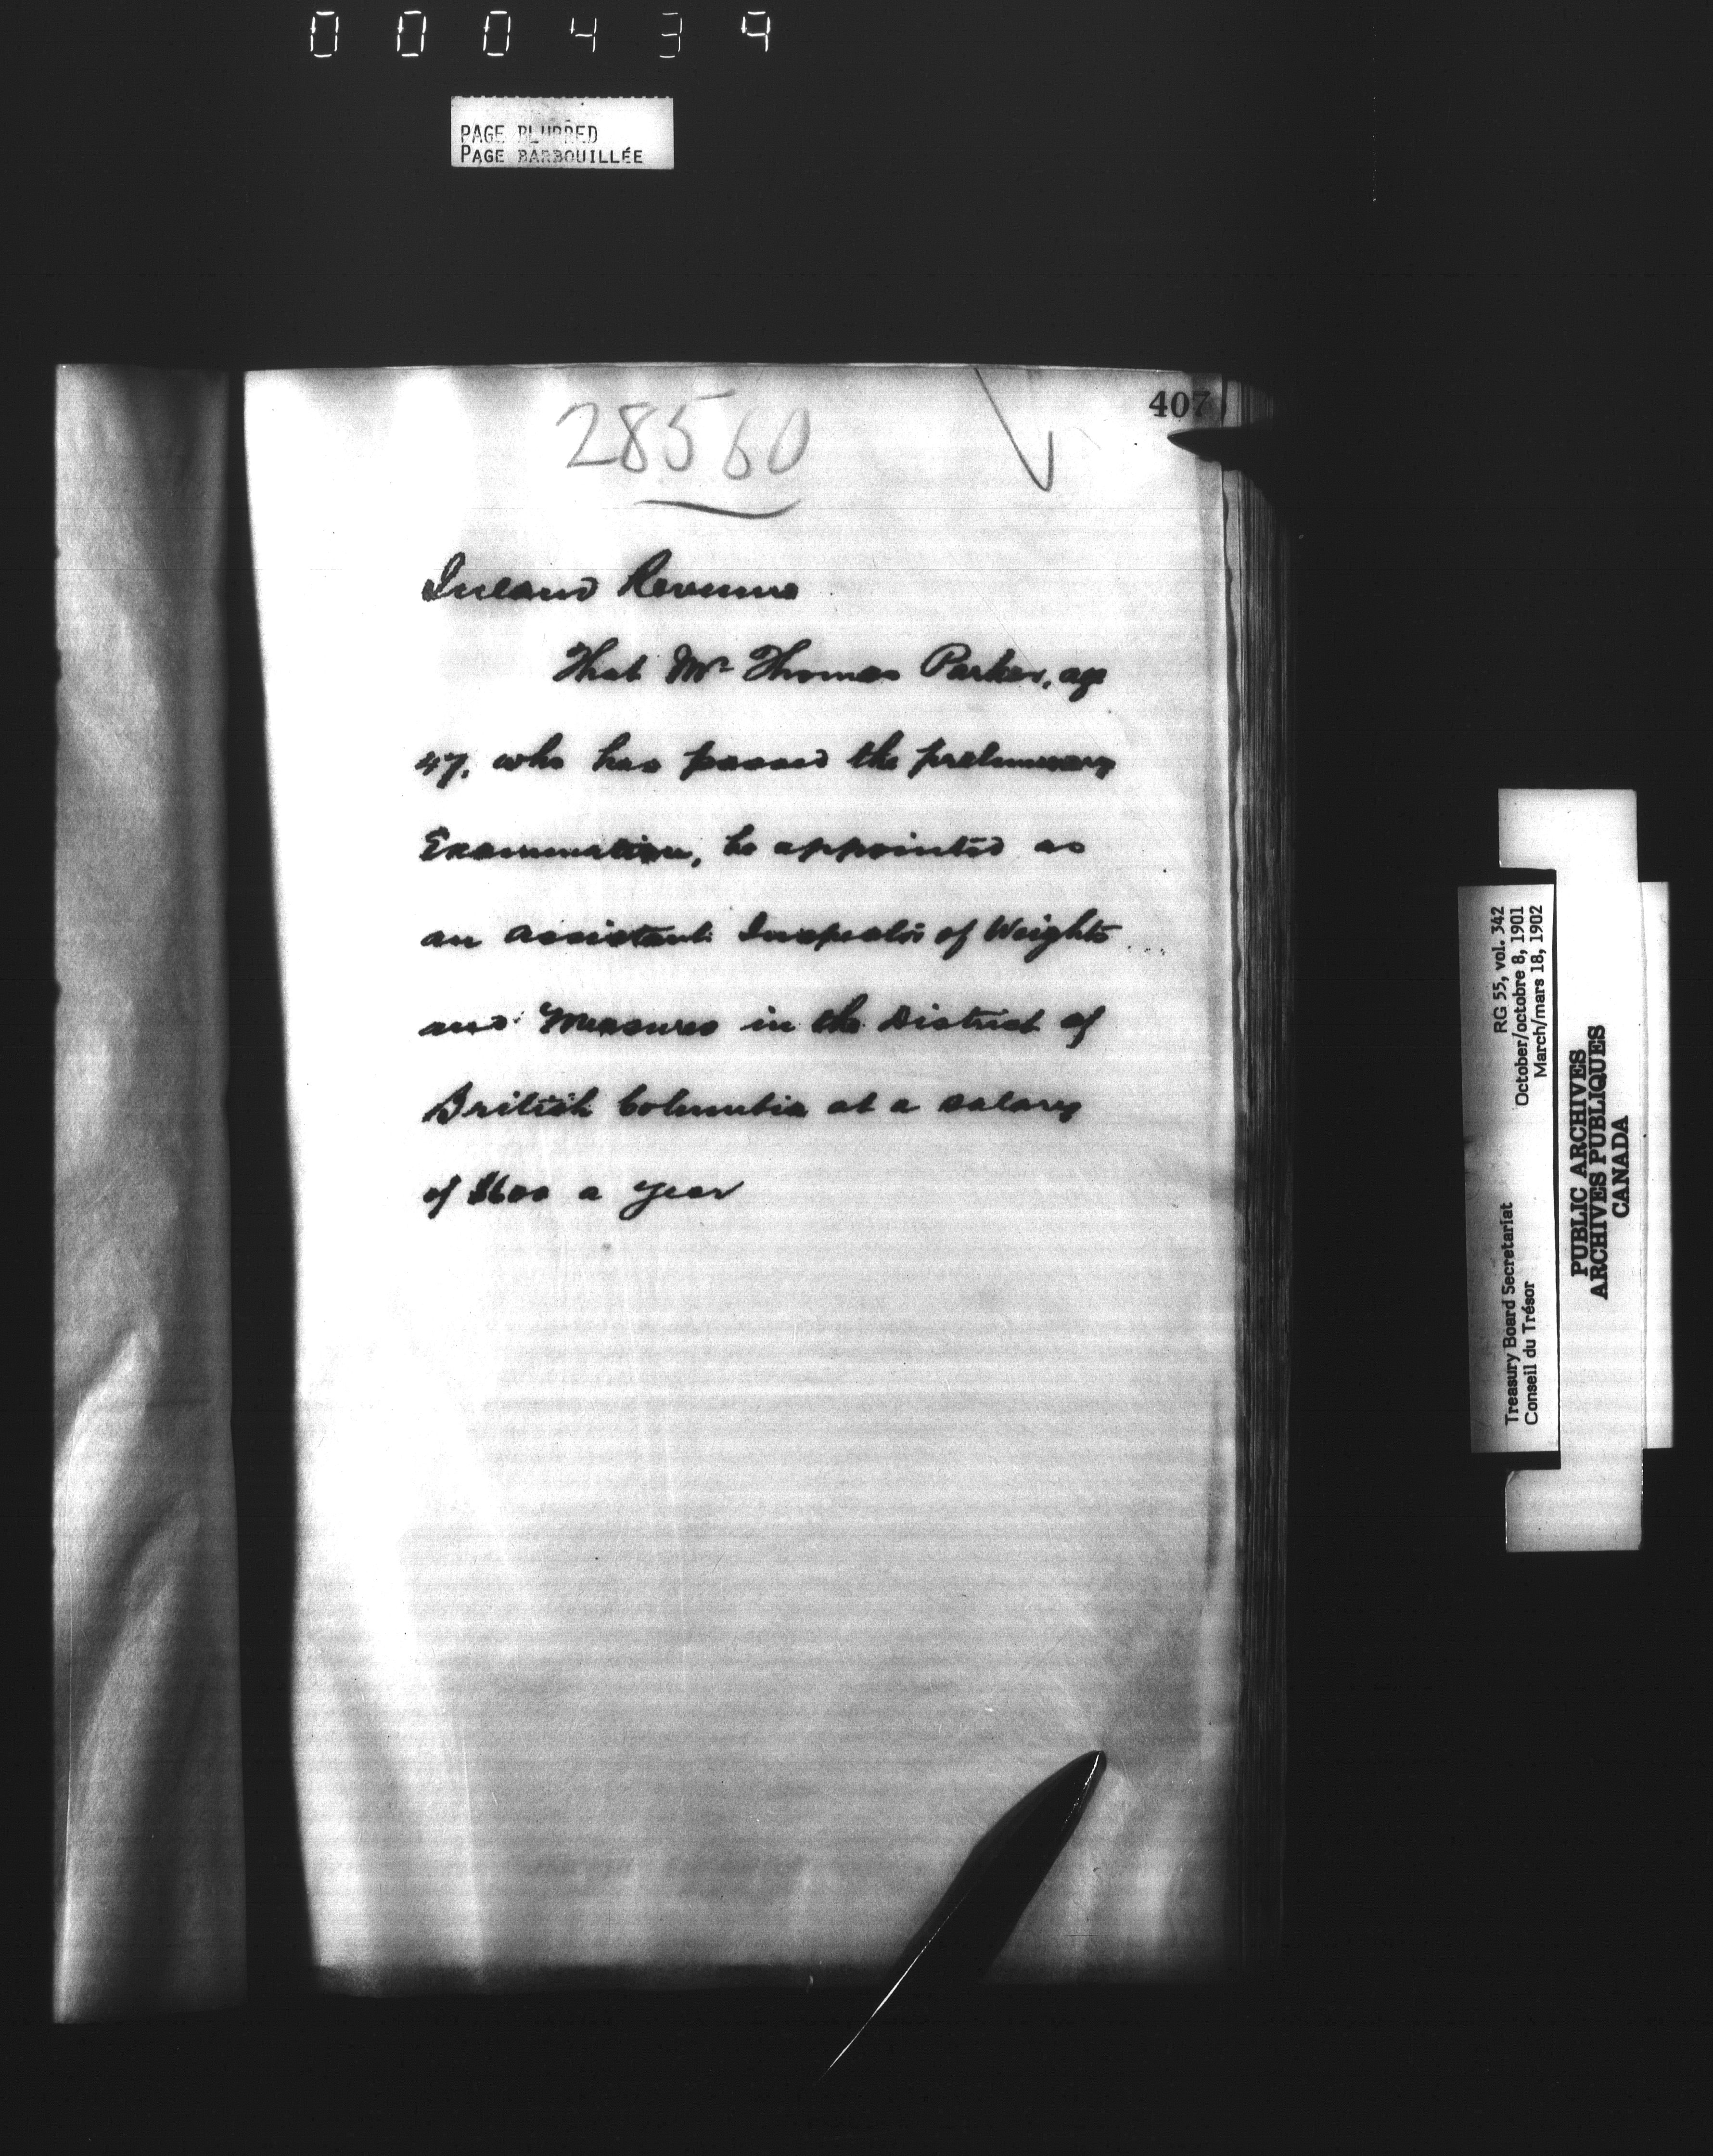 000439
PAGE BLURRED
PAGE BARBOUILLÉE
407
28560
Inland Revenue
That Mr Thomas Parker, age
47, who has passed the preliminary
Examination, be appointed as
an assistant Inspector of Weights
and Measures in the District of
British Columbia at a salary
of $600 a year
Treasury Board Secretariat RG 55, vol. 342
Conseil du Trésor October/octobre 8, 1901
March/mars 18, 1902
PUBLIC ARCHIVES
ARCHIVES PUBLIQUES
CANADA